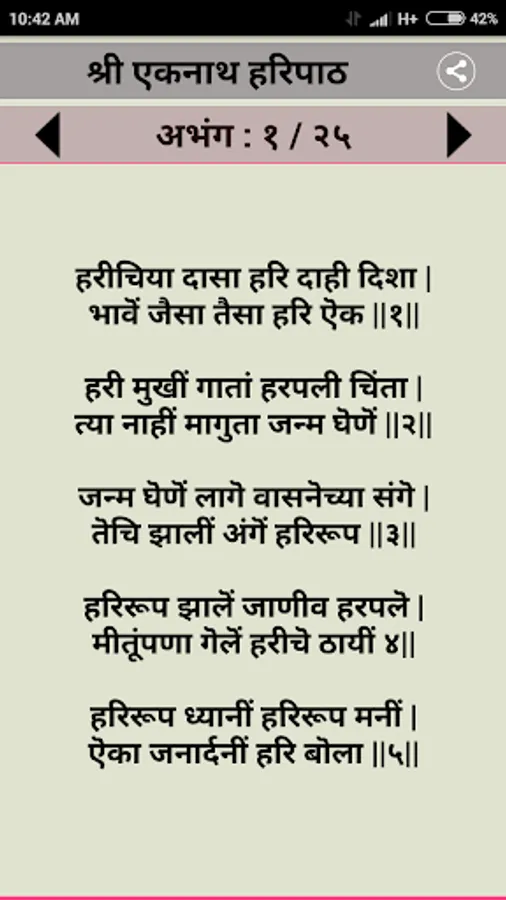 10:42 AM H+ 42%
श्री एकनाथ हरिपाठ
अभंग : १ / २५
हरीचिया दासा हरि दाही दिशा |
भावें जैसा तैसा हरि ऐक ||१||
हरी मुखीं गातां हरपली चिंता |
त्या नाहीं मागुता जन्म घेणें ||२||
जन्म घेणें लागे वासनेच्या संगे |
तेचि झालीं अंगें हरिरूप ||३||
हरिरूप झालें जाणीव हरपले |
मीतूंपणा गेलें हरीचे ठायीं ४||
हरिरूप ध्यानीं हरिरूप मनीं |
ऐका जनार्दनीं हरि बोला ||५||